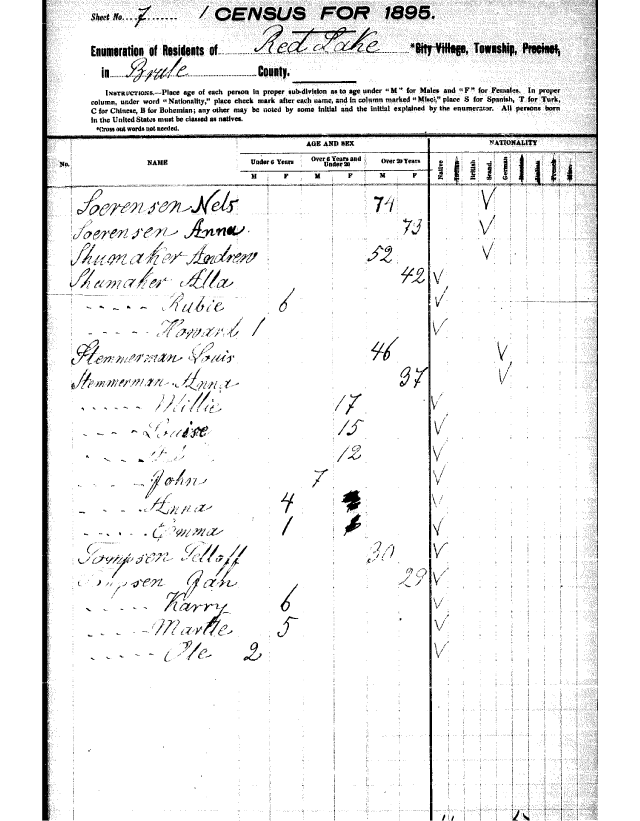 Sheet No. 7
CENSUS FOR 1895.
Enumeration of Residents of Red Lake *City Village, Township, Precinct,
in Brule County.
INSTRUCTIONS.—Place age of each person in proper sub-division as to age under "M" for Males and "F" for Females. In proper
column, under word "Nationality," place check mark after each name, and in column marked "Miscl," place S for Spanish, T for Turk,
C for Chinese, B for Bohemian; any other may be noted by some initial and the initial explained by the enumerator. All persons born
in the United States must be classed as natives.
*Cross out words not needed.
AGE AND SEX NATIONALITY
No. NAME Under 6 Years Over 6 Years and Under 20 Over 20 Years
M F M F M F Native British Scand. German
Soerensen Nels 74 ✓
Soerensen Anna 73 ✓
Shumaker Andrew 52 ✓
Shumaker Alla 42 ✓
----- Rubie 6 ✓
----- Howard 1 ✓
Stemmerman Louis 46 ✓
Stemmerman Anna 37 ✓
----- Millie 17 ✓
----- Louise 15 ✓
----- 12 ✓
----- John 7 ✓
----- Anna 4 ✓
----- Emma 1 ✓
Tompsen 30 ✓
29 ✓
----- Karry 6 ✓
----- 5 ✓
----- Ole 2 ✓